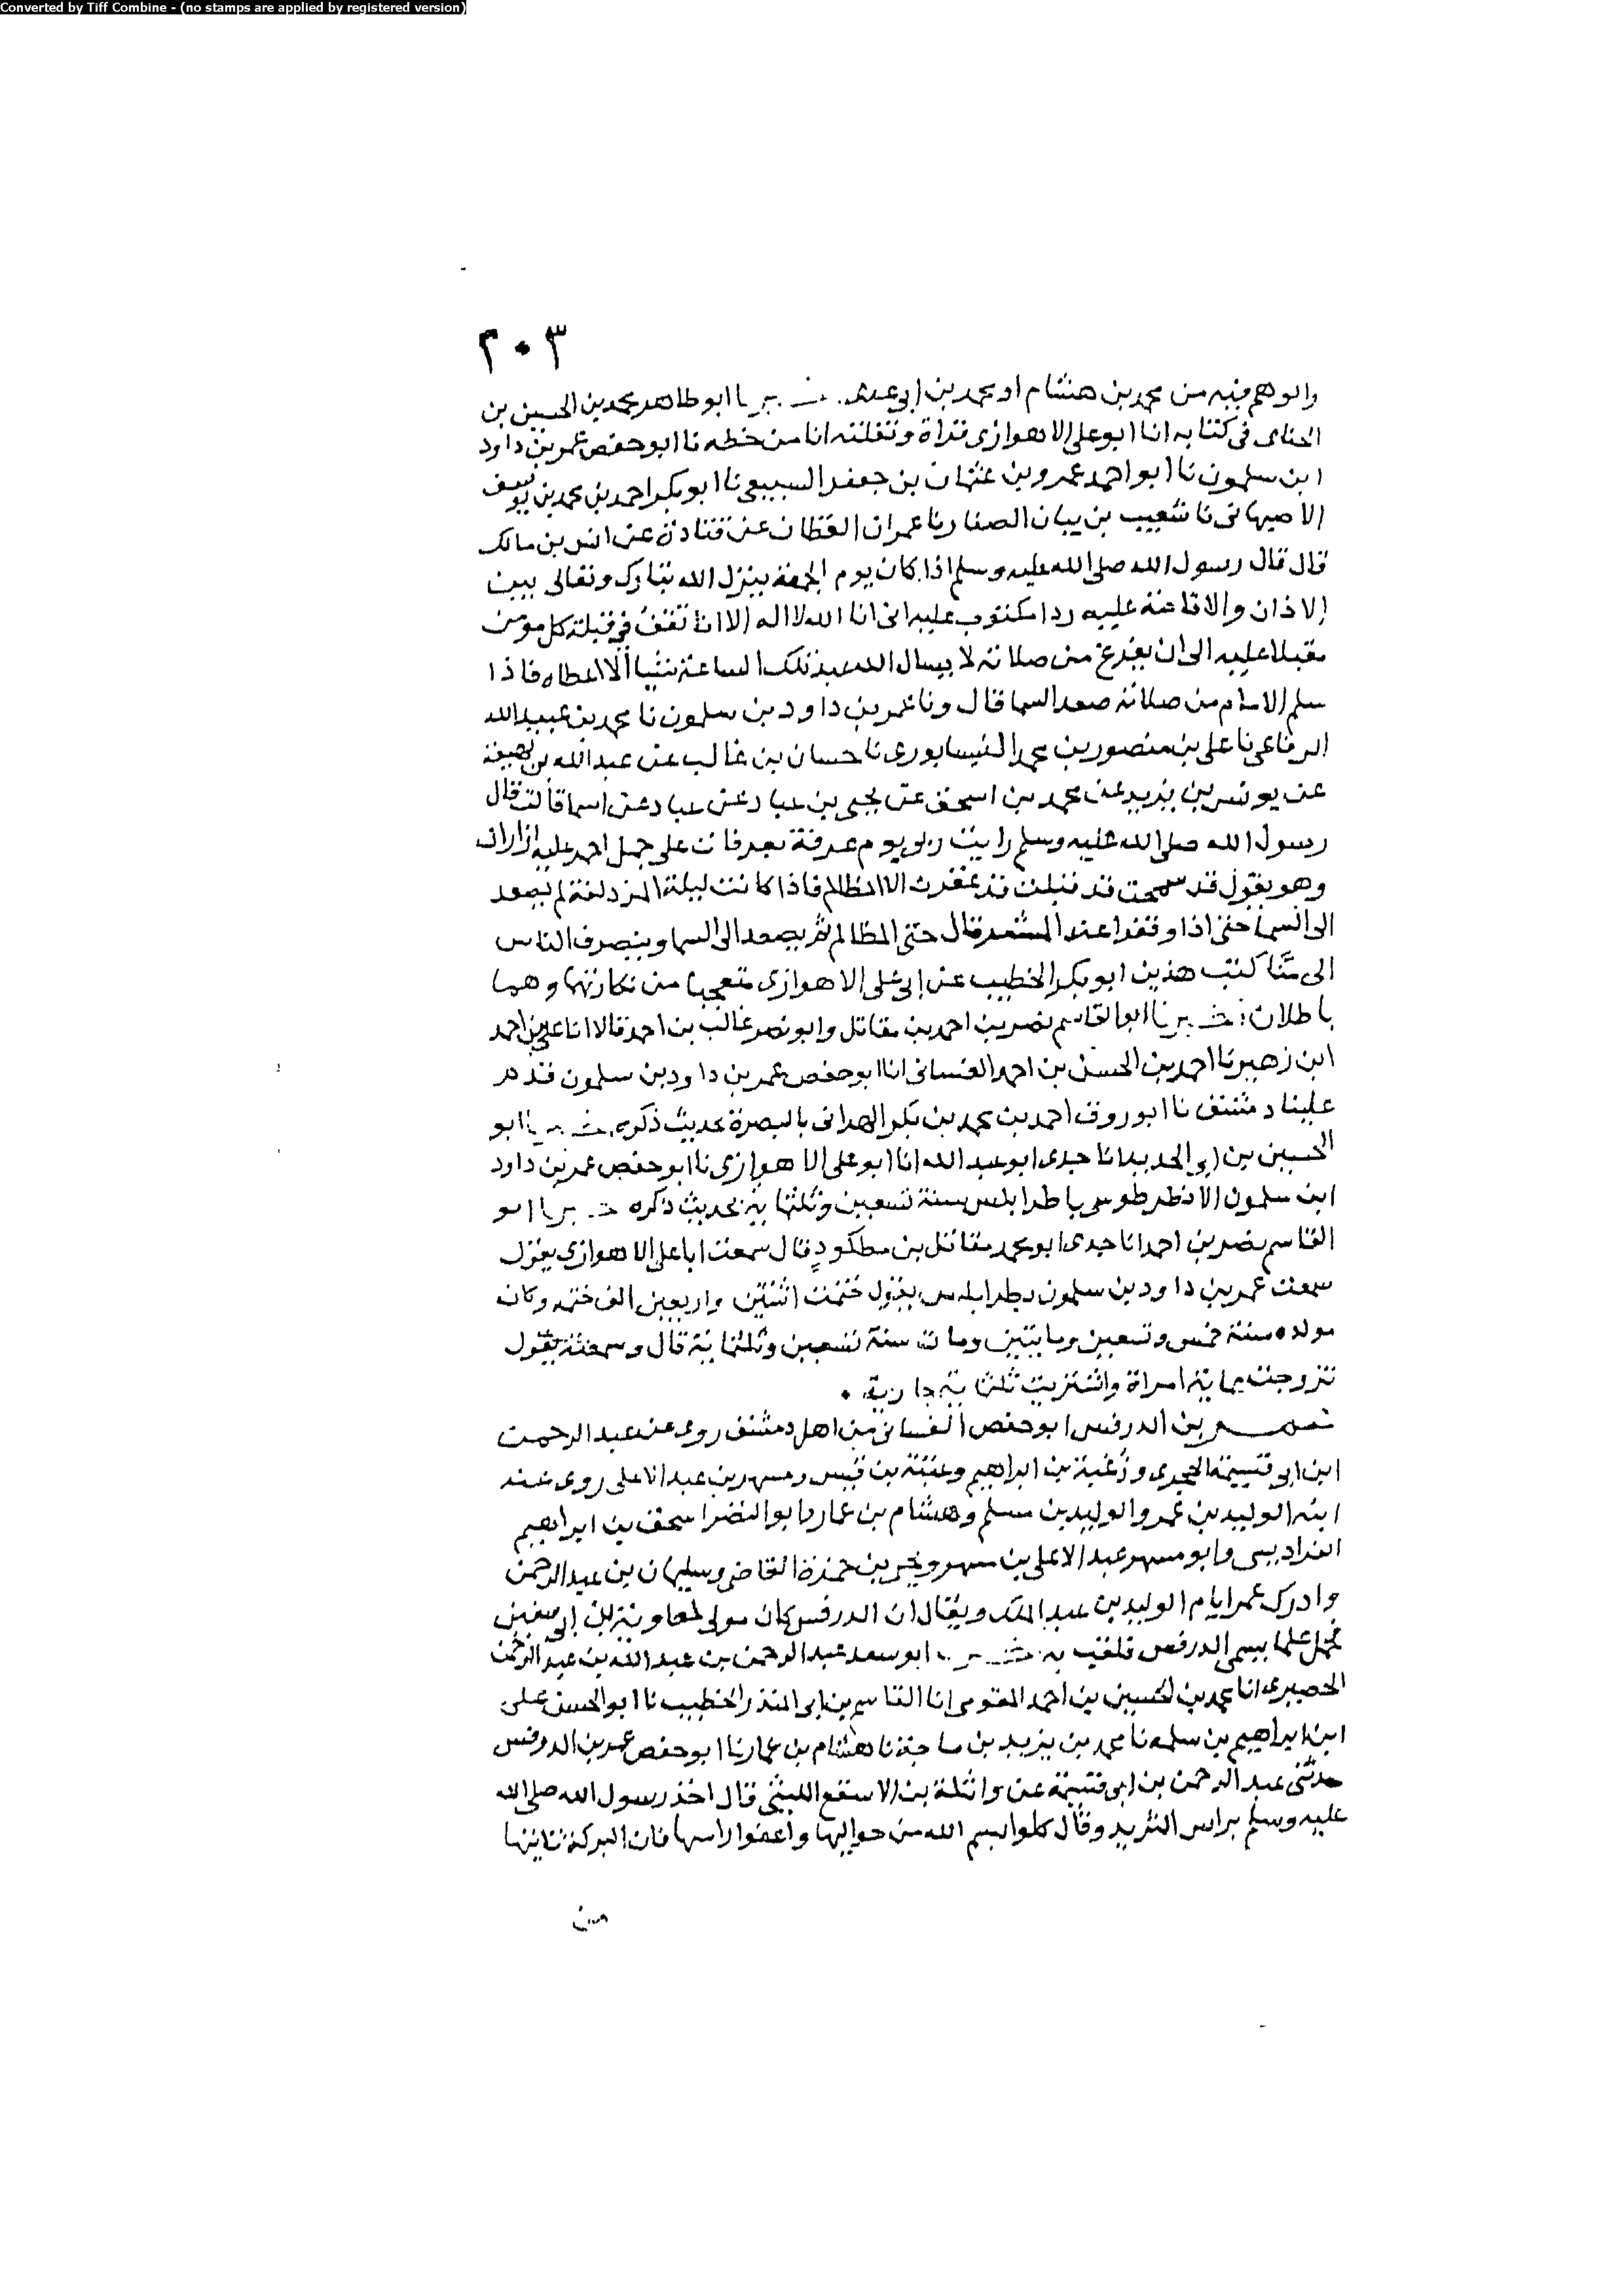 Converted by Tiff Combine - (no stamps are applied by registered version)
٢٠٣
والوهم فيه من محمد بن هشام او محمد بن ابي ابو طاهر محمد بن الحسين بن
الحناى فى كتابه انا ابو على الاهوازى قراة ونقلته انا من خطه نا ابو حفص عمر بن داود
ابن سلمون نا ابو احمد عمرو بن عثمان بن جعفر السبيعى نا ابو بكر احمد بن محمد بن يوسف
الاصبهانى نا شعيب بن بيان الصفار نا عمران القطان عن قتادة عن انس بن مالك
قال قال رسول الله صلى الله عليه وسلم اذا كان يوم الجمعة ينزل الله تبارك وتعالى بين
الاذان والاقامة عليه ردا مكتوب عليه انى انا الله لا اله الا انا تقف فى قبلة كل مومن
مقبلا عليه الى ان يفرغ من صلاته لا يسال الله عبد تلك الساعة شيا الا اعطاه فاذا
سلم الامام من صلاته صعد السما قال ونا عمر بن داود بن سلمون نا محمد بن عبيد الله
الرفاعى نا على بن منصور بن محمد النيسابورى نا حسان بن غالب عن عبد الله بن لهيعة
عن يونس بن يزيد عن محمد بن اسحق عن يحيى بن عباد عن عباد عن اسما قالت قال
رسول الله صلى الله عليه وسلم رايت ربى يوم عرفة بعرفات على جمل احمر عليه ازاران
وهو يقول قد سمحت قد قبلت قد غفرت الا المظالم فاذا كانت ليلة المزدلفة لم يصعد
الى السما حتى اذا وقفوا عند المشعر قال حتى المظالم ثم يصعد الى السما وينصرف الناس
الى منا كتب هذين ابو بكر الخطيب عن ابى على الاهوازى متعجبا من نكارتهما وهما
باطلان ابوا القاسم نصر بن احمد بن مقاتل وابو نصر غالب بن احمد قالا انا على بن احمد
ابن زهير نا احمد بن الحسن بن احمد الغسانى انا ابو حفص عمر بن داود بن سلمون قدم
علينا دمشق نا ابو روق احمد بن محمد بن بكر الهزانى بالبصرة بحديث ذكره ابو
الحسين بن ابى الحديد انا جدى ابو عبد الله انا ابو على الاهوازى نا ابو حفص عمر بن داود
ابن سلمون الانطرطوسى باطرابلس سنة تسعين وثلثماية بحديث ذكره ابو
القاسم نصر بن احمد انا جدى ابو محمد مقاتل بن مطكود قال سمعت ابا على الاهوازى يقول
سمعت عمر بن داود بن سلمون بطرابلس يقول ختمت اثنتين واربعين الف ختمه وكان
مولده سنة خمس وتسعين ومايتين ومات سنة تسعين وثلثماية قال وسمعته يقول
تزوجت بماية امراة واشتريت ثلثماية جارية .
عمر بن الدرفس ابو حفص الغسانى من اهل دمشق روى عن عبد الرحمن
ابن ابى قسيمة الحجرى وزعبة بن ابراهيم وعتبة بن قيس ومسهر بن عبد الاعلى روى عنه
ابنه الوليد بن عمر والوليد بن مسلم وهشام بن عمار وابو النضر اسحق بن ابراهيم
الفراديسى وابو مسهر عبد الاعلى بن مسهر ويحيى بن حمزة القاضى وسليمان بن عبد الرحمن
وادرك عمر ايام الوليد بن عبد الملك ويقال ان الدرفس كان مولى لمعاوية بن ابى سفين
يحمل علما يسمى الدرفس فلقب به ابو سعد عبد الرحمن بن عبد الله بن عبد الرحمن
الحصيرى انا محمد بن الحسين بن احمد المقومى انا القاسم بن ابى المنذر الخطيب نا ابو الحسن على
ابن ابراهيم بن سلمه نا محمد بن يزيد بن ماجة نا هشام بن عمار نا ابو حفص عمر بن الدرفس
حدثنى عبد الرحمن بن ابى قسيمة عن واثلة بن الاسقع الليثى قال اخذ رسول الله صلى الله
عليه وسلم براس الثريد وقال كلوا بسم الله من حواليها واعفوا راسها فان البركة تاتيها
من